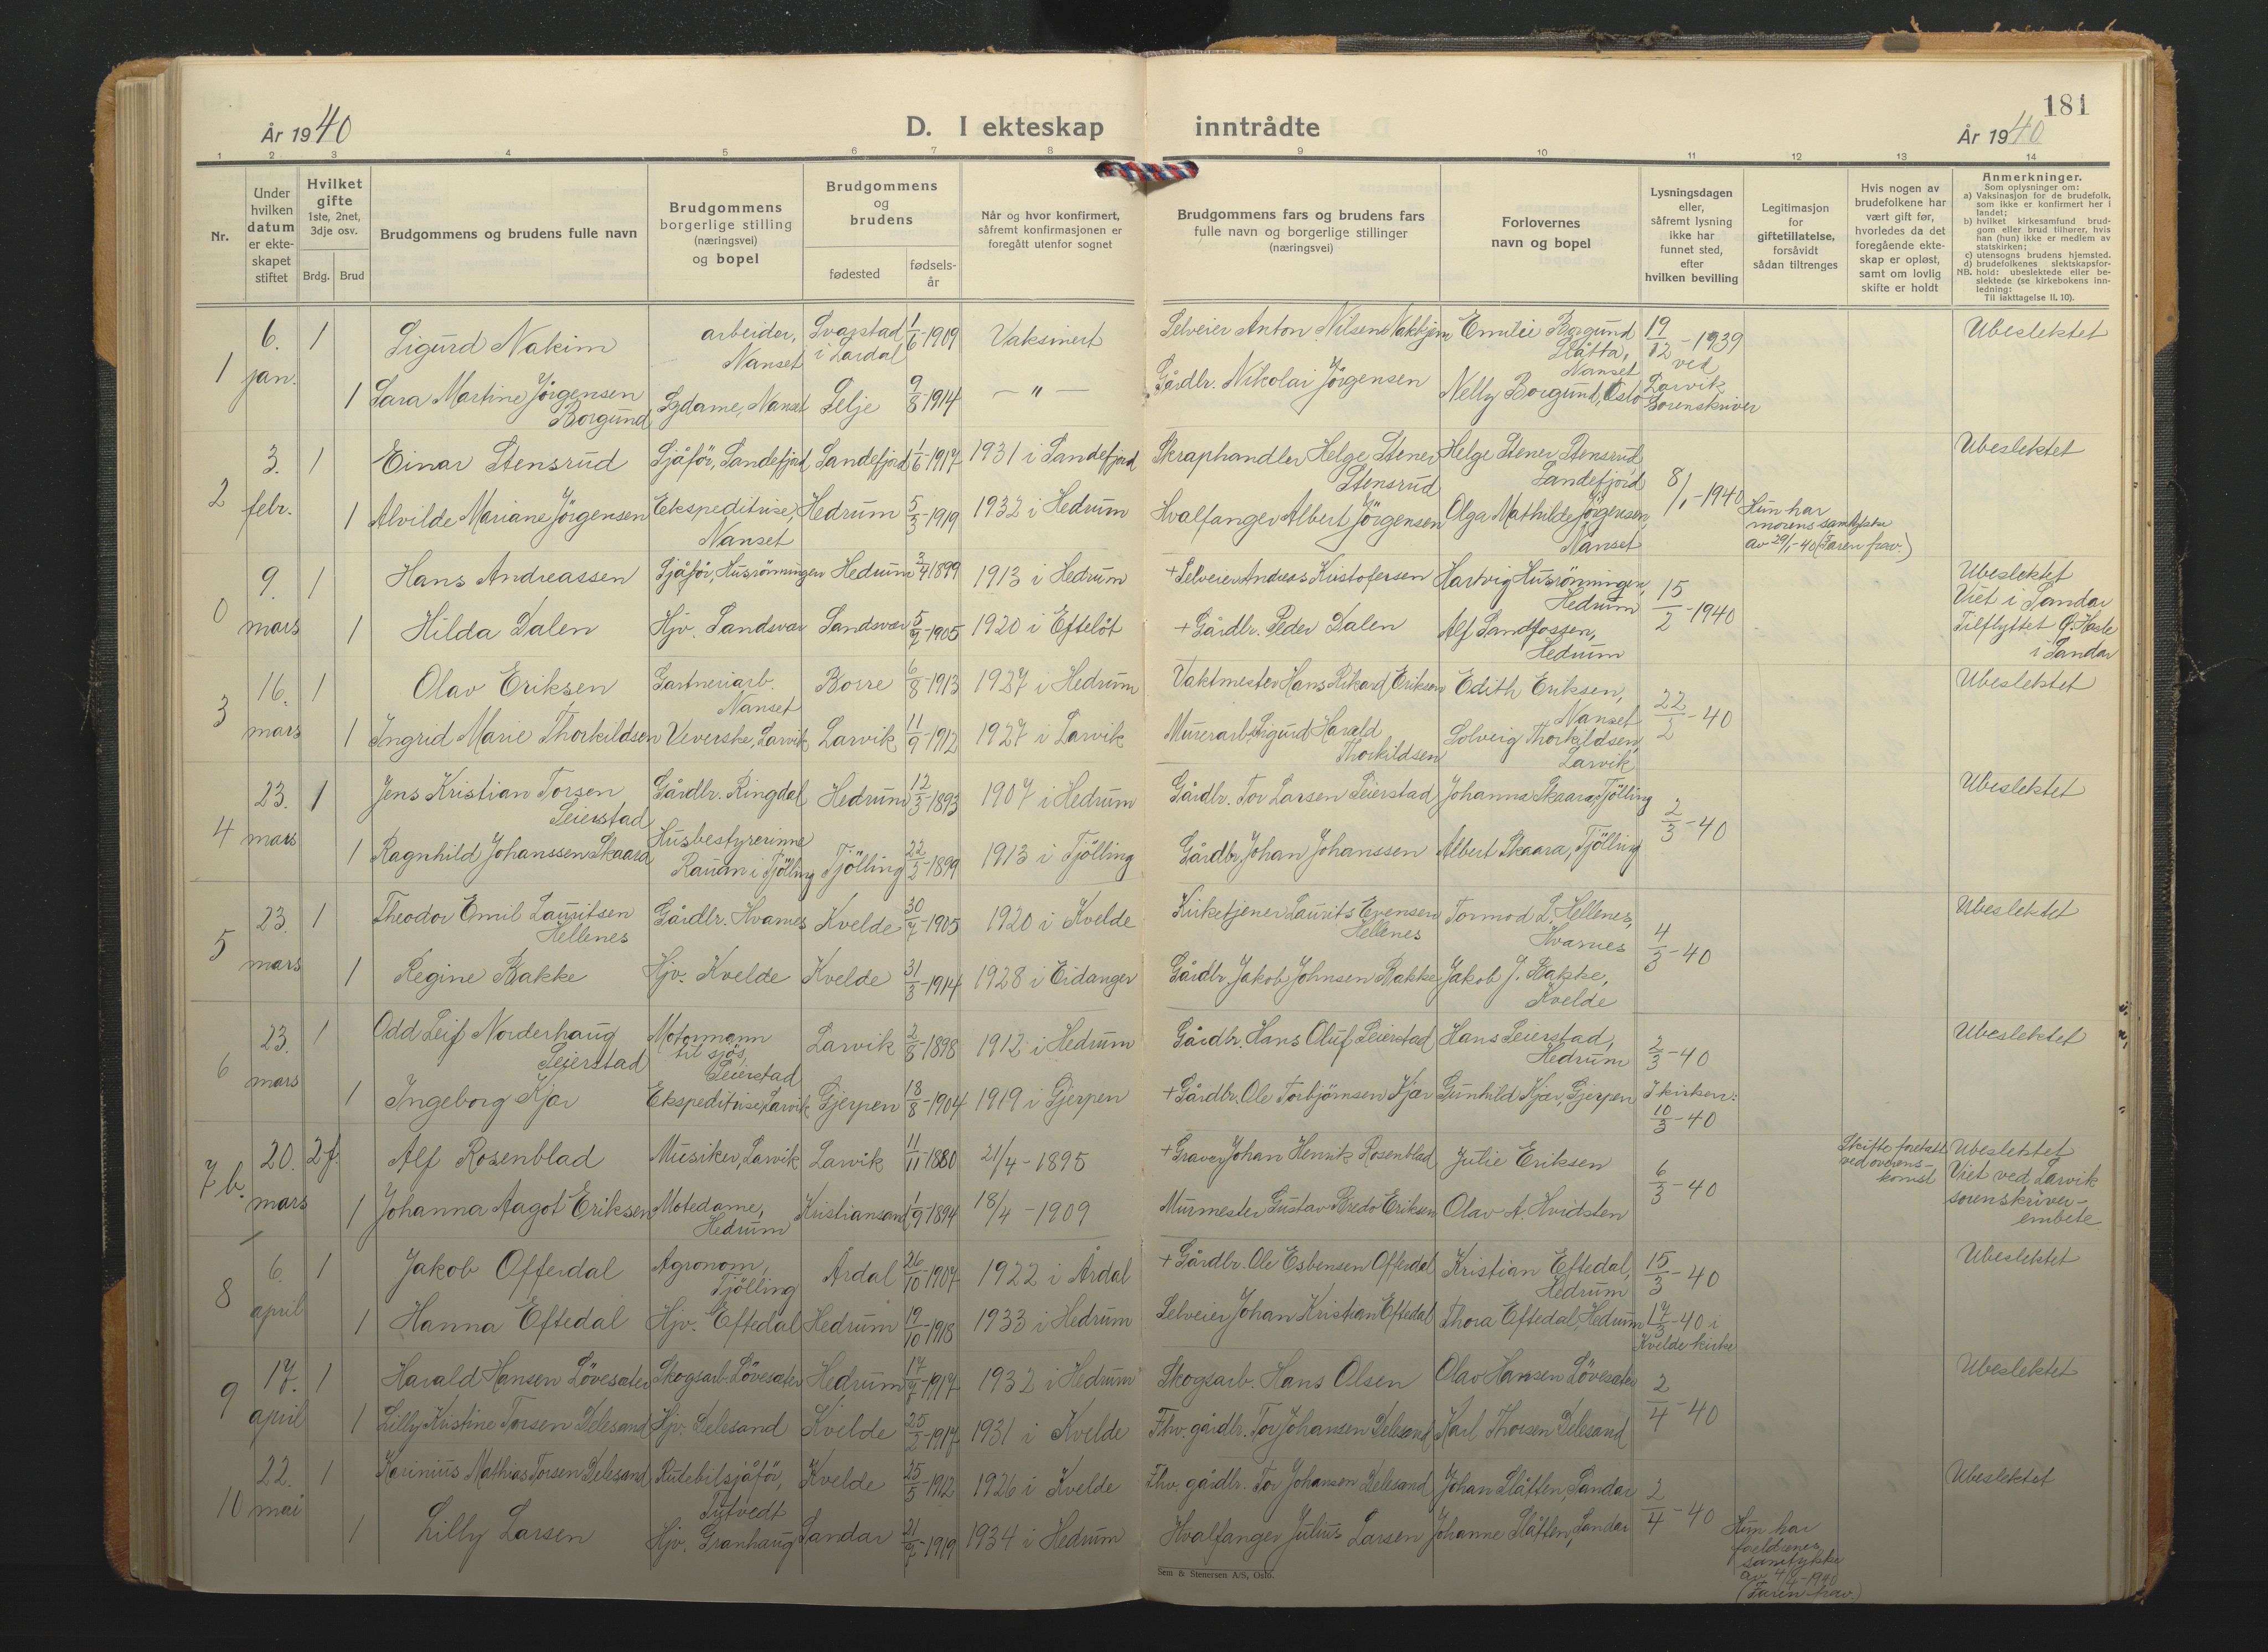 År 1940
D. I ekteskap
inntrådte
181
År 1940
1 2 3 4 5 6 7 8 9 10 11 12 13 14
Nr.
Under
hvilken
datum
er ekte-
skapet
stiftet
Hvilket
gifte
1ste, 2net,
3dje osv.
Brdg. Brud
Brudgommens og brudens fulle navn
Brudgommens
borgerlige stilling
(næringsvei)
og bopel
Brudgommens
og
brudens
fødested
fødsels-
år
Når og hvor konfirmert,
såfremt konfirmasjonen er
foregått utenfor sognet
Brudgommens fars og brudens fars
fulle navn og borgerlige stillinger
(næringsvei)
Forlovernes
navn og bopel
Lysningsdagen
eller,
såfremt lysning
ikke har
funnet sted,
efter
hvilken bevilling
Legitimasjon
for
giftetillatelse,
forsåvidt
sådan tiltrenges
Hvis nogen av
brudefolkene har
vært gift før,
hvorledes da det
foregående ekte-
skap er opløst,
samt om lovlig
skifte er holdt
Anmerkninger.
Som oplysninger om:
a) Vaksinasjon for de brudefolk,
som ikke er konfirmert her i
landet;
b) hvilket kirkesamfund brud-
gom eller brud tilhører, hvis
han (hun) ikke er medlem av
statskirken;
c) utensogns brudens hjemsted.
d) brudefolkenes slektskapsfor-
NB. hold: ubeslektede eller be-
slektede (se kirkebokens inn-
ledning:
Til iakttagelse II, 10).
1
6.
jan.
1 Sigurd Nakim
arbeider,
Nanset
Svapstad
i Lardal
1/6-1909
Vaksinert
Selveier Anton Nilsen Nakkjem
Emilie Borgund
Slåtta,
Nanset
19/12-1939
ved
Larvik
Sorenskriver
Ubeslektet
1 Sara Martine Jörgensen
Borgund
Sydame, Nanset
Selje
9/8-1914
— " —
Gårdbr. Nikolai Jörgensen
Nelly Borgund, Oslo
2
3.
febr.
1 Einar Stensrud
Sjåför, Sandefjord
Sandefjord
1/6-1917
1931 i Sandefjord
Skraphandler Helge Stener
Stensrud
Helge Stener Stensrud,
Sandefjord
8/1-1940
Ubeslektet
1 Alvilde Mariane Jörgensen
Ekspeditrise,
Nanset
Hedrum
5/3-1919
1932 i Hedrum
Hvalfanger Albert Jörgensen
Olga Mathilde Jörgensen,
Nanset
Hun har
morens samtykke
av 29/1-40 (Faren frav.)
0
9.
mars
1 Hans Andreassen
Sjåför, Husrönningen
Hedrum
3/4 1899
1913 i Hedrum
+ Selveier Andreas Kristofersen
Hartvig Husrönningen,
Hedrum
15/2-1940
Ubeslektet
Viet i Sandar
Tilflyttet Hasle
i Sandar
1 Hilda Dalen
Hjv. Sandsvær
Sandsvær
5/7-1905
1920 i Efteløt
+ Gårdbr. Peder Dalen
Alf Sandfossen,
Hedrum
3
16.
mars
1 Olav Eriksen
Gartneriarb.
Nanset
Borre
6/8-1913
1927 i Hedrum
Vaktmester Hans Rikard Eriksen
Edith Eriksen,
Nanset
22/2-40
Ubeslektet
1 Ingrid Marie Thorkildsen
Veverske, Larvik
Larvik
11/9-1912
1927 i Larvik
Murerarb. Sigurd Harald
Thorkildsen
Solveig Thorkildsen,
Larvik
4
23.
mars
1 Jens Kristian Torsen
Seierstad
Gårdbr. Ringdal
Hedrum
12/3-1893
1907 i Hedrum
Gårdbr. Tor Larsen Seierstad
Johanna Skaara, Tjölling
2/3-40
Ubeslektet
1 Ragnhild Johanssen Skaara
Husbestyrerinne
Rauan i Tjölling
Tjölling
22/2-1899
1913 i Tjölling
Gårdbr. Johan Johanssen
Albert Skaara, Tjölling
5
23.
mars
1 Theodor Emil Lauritsen
Hellenes
Gårdbr. Hvarnes
Kvelde
30/7-1905
1920 i Kvelde
Kirketjener Laurits Evensen
Hellenes
Tormod L. Hellenes,
Hvarnes
4/3-40
Ubeslektet
1 Regine Bakke
Hjv. Kvelde
Kvelde
31/3-1914
1928 i Eidanger
Gårdbr. Jakob Johnsen Bakke
Jakob J. Bakke,
Kvelde
6
23.
mars
1 Odd Leif Norderhaug
Seierstad
Motormann
til sjös,
Seierstad
Larvik
2/8-1898
1912 i Hedrum
Gårdbr. Hans Oluf Seierstad
Hans Seierstad,
Hedrum
2/3-40
Ubeslektet
1 Ingeborg Kjær
Ekspeditrise, Larvik
Gjerpen
18/8-1904
1919 i Gjerpen
+ Gårdbr. Ole Torbjørnsen Kjær
Gunhild Kjær, Gjerpen
I kirken:
10/3-40
7 b.
20.
mars
2f. Alf Rosenblad
Musiker, Larvik
Larvik
11/11-1880
21/4-1895
+ Graver Johan Henrik Rosenblad
Julie Eriksen
6/3-40
Skifte foretatt
ved overens-
komst
Ubeslektet
Viet ved Larvik
sorenskriver-
embete
1 Johanna Aagot Eriksen
Motedame,
Hedrum
Kristiansand
1/9-1894
18/4-1909
Murmester Gustav Bredo Eriksen
Olav A. Hvidsten
8
6.
april
1 Jakob Offerdal
Agronom,
Tjölling
Årdal
26/10-1907
1922 i Årdal
+ Gårdbr. Ole Esbensen Offerdal
Kristian Eftedal,
Hedrum
15/3-40
Ubeslektet
1 Hanna Eftedal
Hjv. Eftedal
Hedrum
19/10-1918
1933 i Hedrum
Selveier Johan Kristian Eftedal
Thora Eftedal, Hedrum
17/3-40 i
Kvelde kirke
9
17.
april
1 Harald Hansen Lövesæter
Skogsarb. Lövesæter
Hedrum
1932 i Hedrum
Skogsarb. Hans Olsen
Olav Hansen Lövesæter
2/4-40
Ubeslektet
1 Lilly Kristine Torsen Delesand
Hjv. Delesand
Kvelde
25/2-1917
1931 i Kvelde
Fhv. gårdbr. Tor Johansen Delesand
Karl Thorsen Delesand
10
22.
mai
1 Karinius Mathias Torsen Delesand
Rutebilsjåför,
Tutvedt
Kvelde
25/5-1912
1926 i Kvelde
Fhv. gårdbr. Tor Johansen Delesand
Johan Slåtten, Sandar
2/4-40
Ubeslektet
1 Lilly Larsen
Hjv. Granhaug
Sandar
21/7-1919
1934 i Hedrum
Hvalfanger Julius Larsen
Johanne Slåtten, Sandar
Hun har
foreldrenes
samtykke
av 4/4-1940
(Faren frav.)
Sem & Stenersen A/S, Oslo.